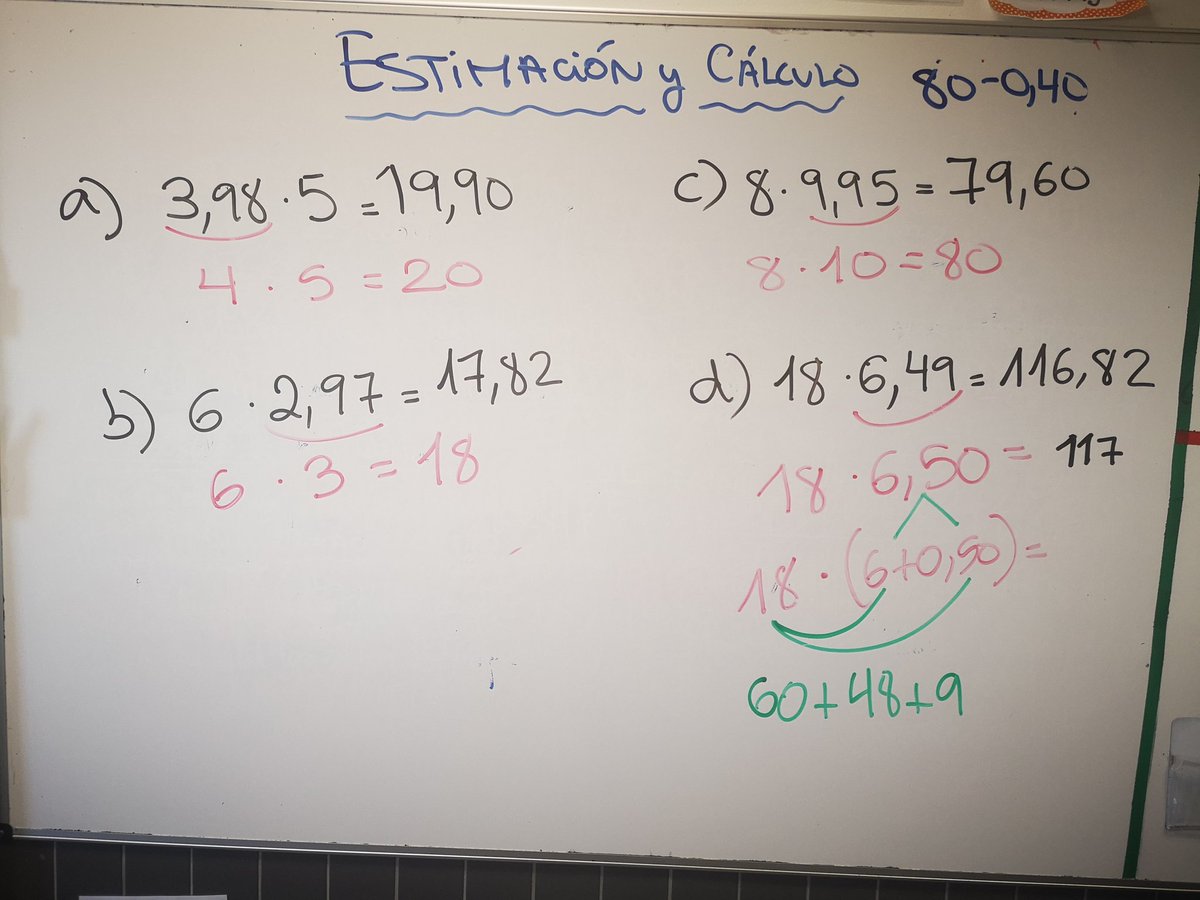 ESTIMACIÓN y CÁLCULO 80-0,40
a) 3,98·5=19,90
4·5=20
b) 6·2,97=17,82
6·3=18
c) 8·9,95=79,60
8·10=80
d) 18·6,49=116,82
18·6,50=117
18·(6+0,50)=
60+48+9